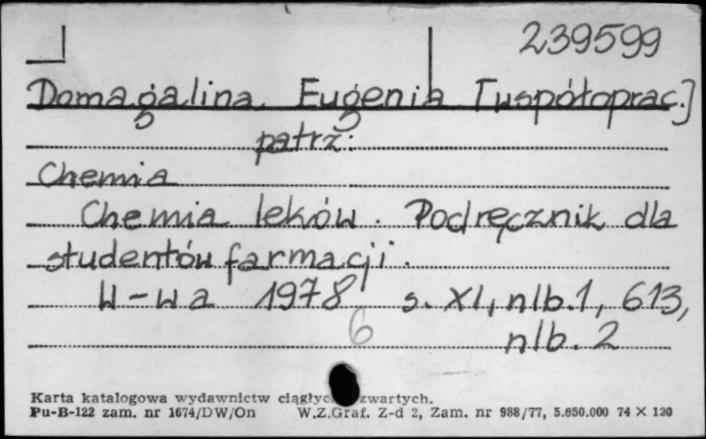 239599
Domagalina, Eugenia [współoprac.]
patrz:
Chemia
Chemia leków. Podręcznik dla
studentów farmacji.
W-wa 1978 s. XI, nlb.1, 613,
6 nlb. 2
Karta katalogowa wydawnictw zwartych.
Pu-B-122 zam. nr 1674/DW/On W.Z.Graf. Z-d 2, Zam. nr 988/77, 5.650.000 74 X 120